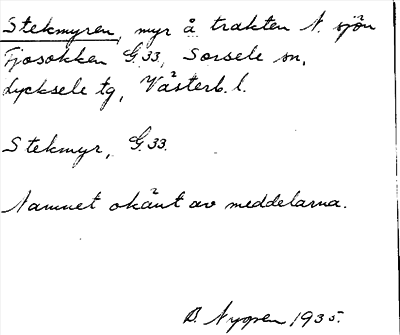 Stekmyren, myr å trakten N. sjön
Fjosokken G.33, Sorsele sn,
Lycksele tg, Västerb. l.
Stekmyr, G.33.
Namnet okänt av meddelarna.
B. Nygren 1935.